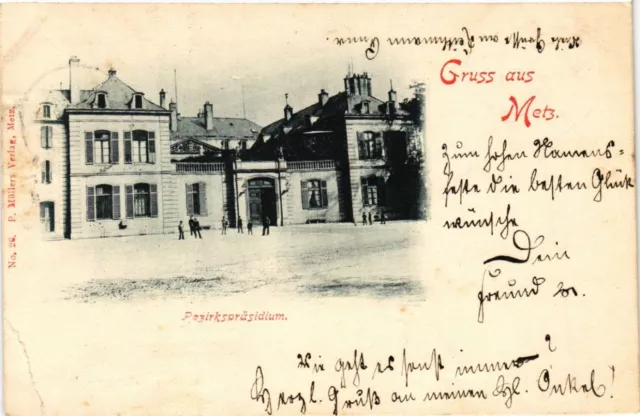 Gruss aus
Metz.
Zum hohen Namens-
feste die besten Glück
wünsche
Dein
Freund
Bezirkspräsidium.
Wie geht es sonst immer?
Herzl. Gruß an meinen hl. Onkel!
No. 26. P. Müllers Verlag, Metz.
Viele Grüße an